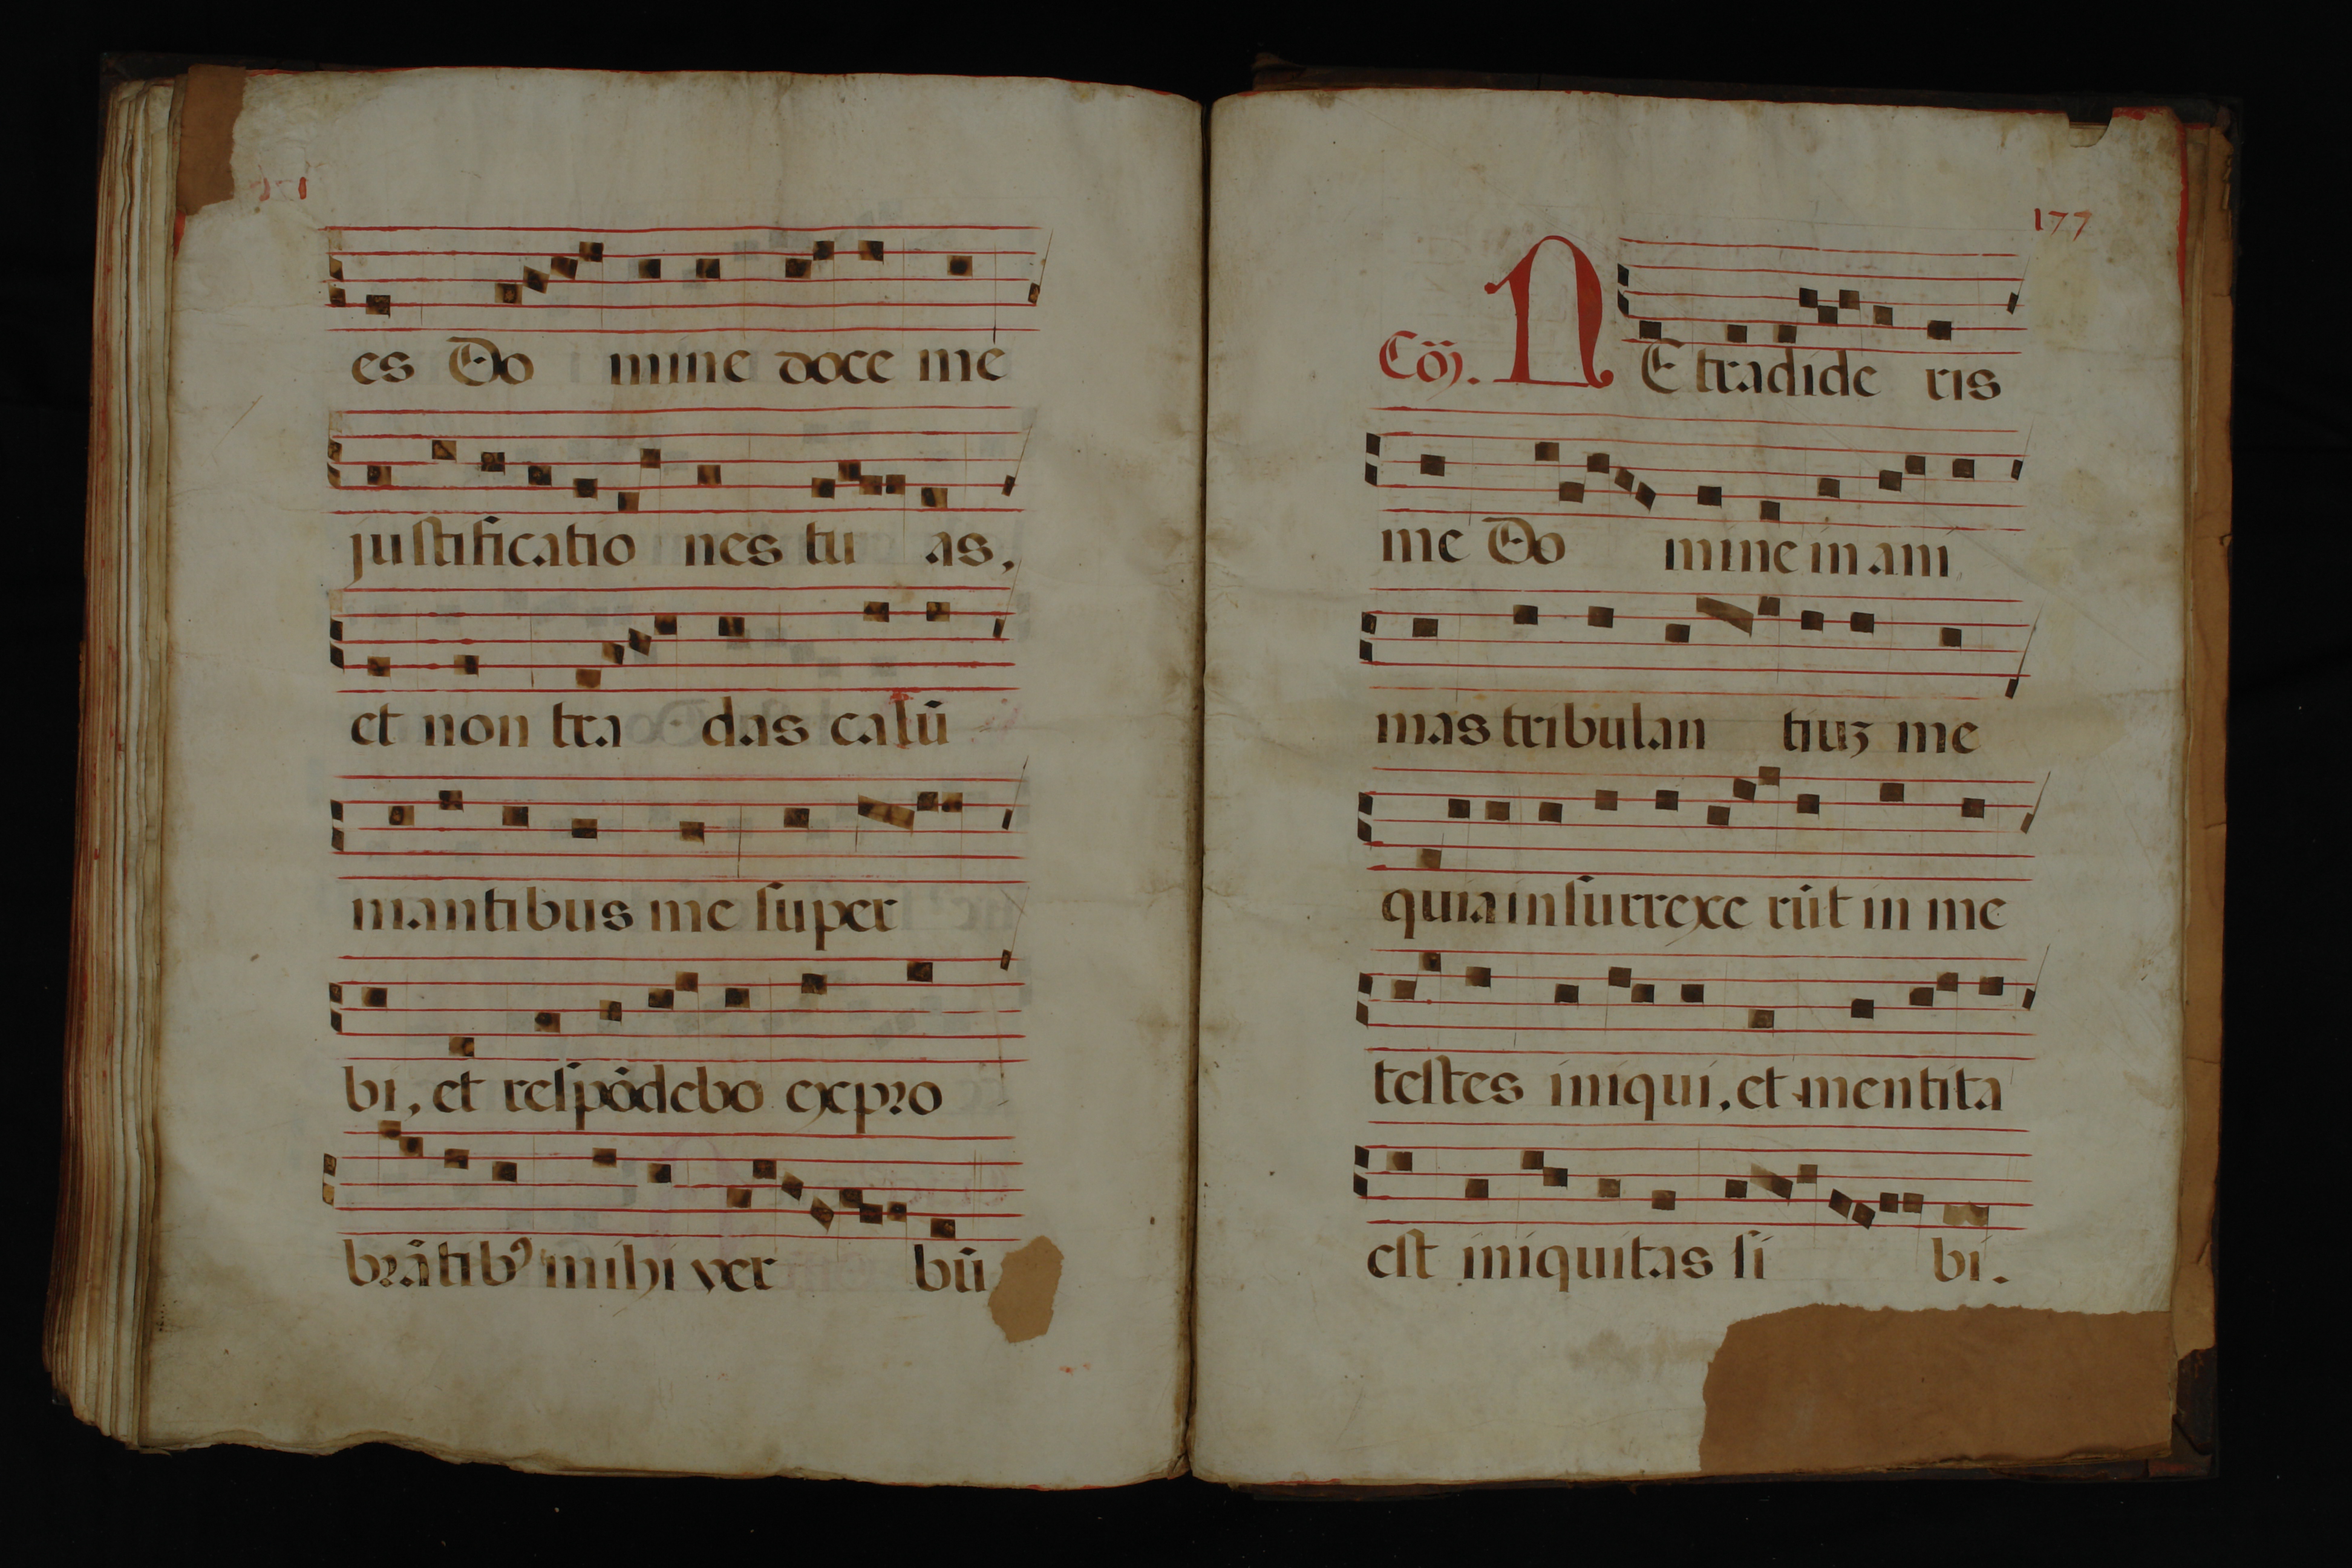 es Do mine doce me
justificatio nes tu as,
et non tra das calū
mantibus me super
bi, et respōdebo expro
brātibꝰ mihi ver bū
177
Cōȷ. NE tradide ris
me Do mine in ani
mas tribulan tiuʒ me
quia insurrexe rūt in me
testes iniqui, et mentita
est iniquitas si bi.